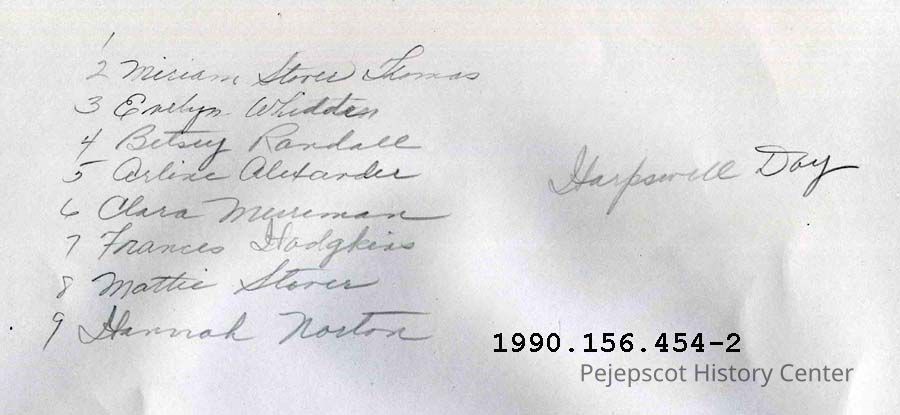 1
2 Miriam Stover Thomas
3 Evelyn Whidden
4 Betsey Randall
5 Arline Alexander
6 Clara Merriman
7 Frances Hodgkins
8 Mattie Stover
9 Hannah Norton
Harpswell Day
1990.156.454-2
Pejepscot History Center